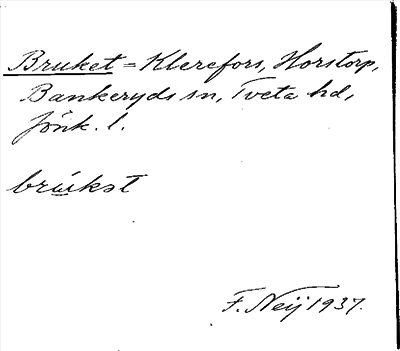 Bruket = Klerefors, Horstorp,
Bankeryds sn, Tveta hd,
Jönk. l.
brúkət
F. Neij 1937.